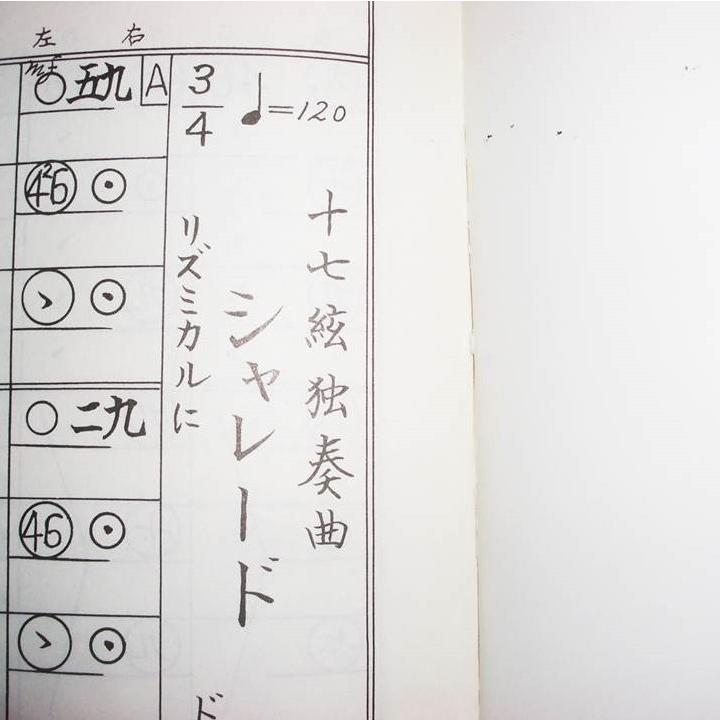 十七絃独奏曲
シャレード
3/4 ♩=120
リズミカルに
ド
左 右
A
mf ○ 五九
4 2 6 ⊙
ヽ ⊙
○ 二九
46 ⊙
ヽ ⊙